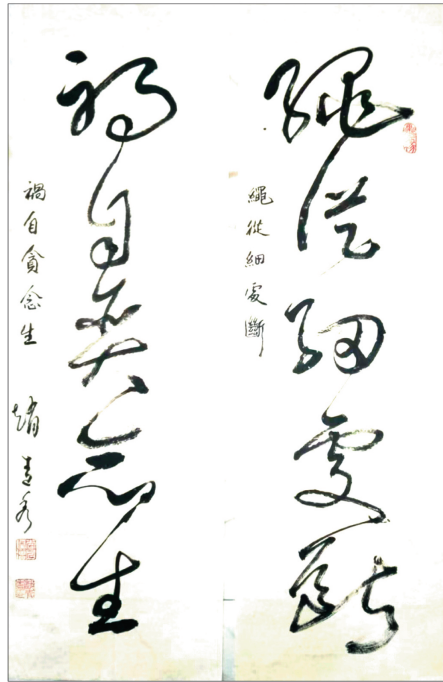 繩從細處斷
繩從細處斷
禍自貪念生
禍自貪念生